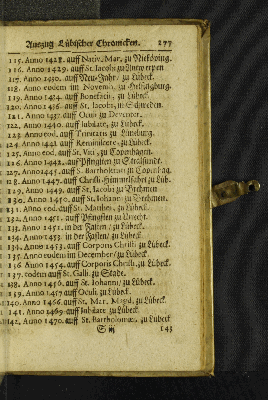 Auszug Lübischer Chronicken. 177
115. Anno 1428. auff Nativ. Mar. zu Nieköping.
116. Anno 1429. auff St. Jacobi zu Antwerpen
117. Anno 1430. auff Neu-Jahr/ zu Lübeck.
118. Anno eodem im Novemb. zu Helsingburg.
119. Anno 1434. auff Bonifacii, zu Lübeck.
120. Anno 1436. auff St. Jacobi, in Schweden.
121. Anno 1437. auff Oculi zu Deventer.
122. Anno 1440. auff Jubilate, zu Lübeck.
123. Anno eod. auff Trinitatis zu Lüneburg.
124. Anno 1441. auff Reminiscere, zu Lübeck.
125. Anno eod. auff St. Viti, zu Copenhagen.
126. Anno 1442. auff Pfingsten zu Stralsund.
127. Anno 1445. auff S. Bartholom. zu Copenhag.
128. Anno 1447. auff Christi Himmelfahrt zu Lüb.
129. Anno 1449. auff St. Jacobi zu Bremen
130. Anno 1450. auff St. Johann. zu Bremen.
131. Anno eod. auff St. Matthæi, zu Lübeck.
132. Anno 1451. auff Pfingsten zu Utrecht.
133. Anno 1451. in der Fasten/ zu Lübeck.
134. Anno 1453. in der Fasten/ zu Lübeck.
134. Anno 1453. auff Corporis Christi zu Lübeck.
135. Anno eodem im December/ zu Lübeck.
136. Anno 1454. auff Corporis Christi, zu Lübeck.
137. eodem auff St. Galli, zu Stade.
138. Anno 1456. auff St. Johann/ zu Lübeck.
139. Anno 1457. auff Oculi zu Lübeck.
140. Anno 1466. auff St. Mar. Magd. zu Lübeck.
141. Anno 1469. auff Jubilate zu Lübeck.
142. Anno 1470. auff St. Bartholomæi, zu Lübeck
143